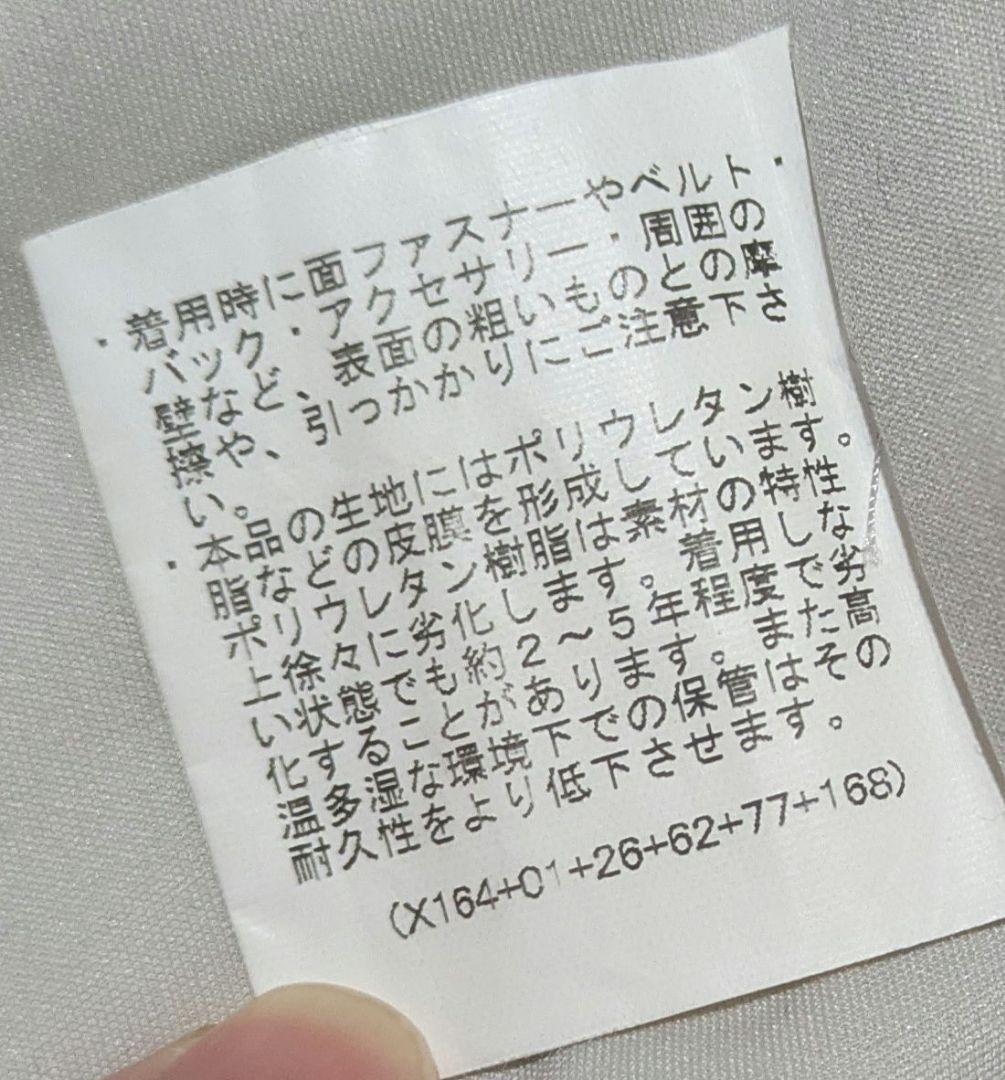 ・着用時に面ファスナーやベルト・
バック・アクセサリー・周囲の
壁など、表面の粗いものとの摩
擦や、引っかかりにご注意下さ
い。
・本品の生地にはポリウレタン樹
脂などの皮膜を形成しています。
ポリウレタン樹脂は素材の特性
上徐々に劣化します。着用しな
い状態でも約2～5年程度で劣
化することがあります。また高
温多湿な環境下での保管はその
耐久性をより低下させます。
(X164+01+26+62+77+168)